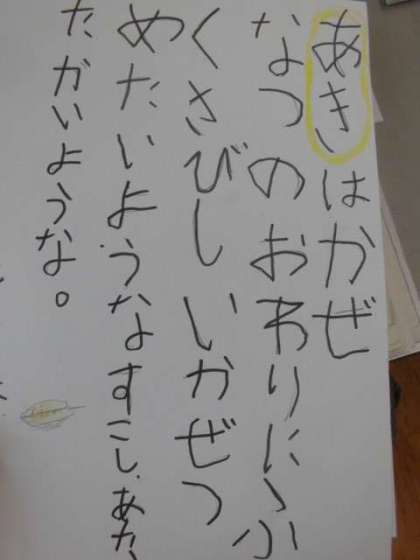 あきいはかぜ
なつのおわりにふ
くさびしいかぜつ
めたいようなすこしあた
たかいような。